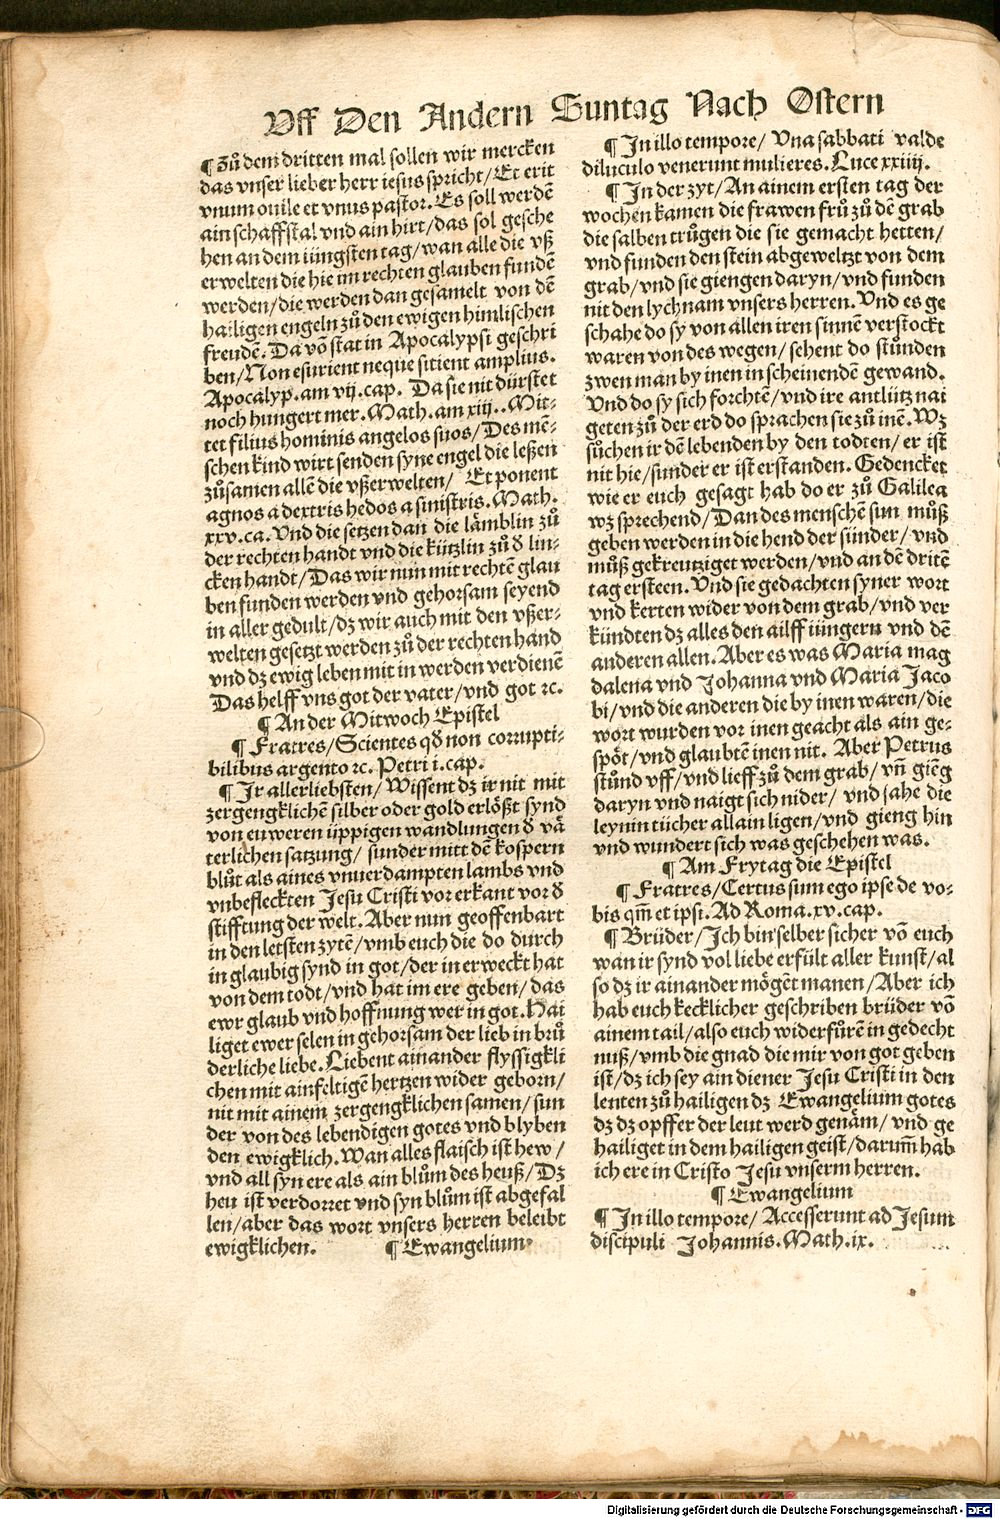 Vff Den Andern Suntag Nach Ostern
¶ Zů dem dritten mal sollen wir mercken
das vnser lieber herr iesus spricht/Et erit
vnum ouile et vnus pastor. Es soll werdē
ain schaffstal vnd ain hirt/das sol gesche
hen an dem iüngsten tag/wan alle die vß
erwelten die hie im rechten glauben fundē
werden/die werden dan gesamelt von dē
hailigen engeln zů den ewigen himlischen
freudē. Da vō stat in Apocalypsi geschri
ben/Non esurient neque sitient amplius.
Apocalyp. am vij. cap. Da sie nit dürstet
noch hungert mer. Math. am xiij.. Mit-
tet filius hominis angelos suos/Des mē-
schen kind wirt senden syne engel die leßen
zůsamen allē die vßerwelten/ Et ponent
agnos a dextris hedos a sinistris. Math.
xxv. ca. Vnd die setzen dan die lämblin zů
der rechten handt vnd die kützlin zů ð lin-
cken handt/Das wir nun mit rechtē glau
ben funden werden vnd gehorsam seyend
in aller gedult/dz wir auch mit den vßer-
welten gesetzt werden zů der rechten hand
vnd dz ewig leben mit in werden verdienē
Das helff vns got der vater/vnd got ⁊c.
¶ An der Mitwoch Epistel
¶ Fratres/Scientes qð non corrupti-
bilibus argento ⁊c. Petri i. cap.
¶ Ir allerliebsten/Wissent dz ir nit mit
zergengklichē silber oder gold erlößt synd
von euweren üppigen wandlungen ð vä
terlichen satzung/ sunder mitt dē kospern
blůt als aines vnuerdampten lambs vnd
vnbefleckten Jesu Cristi vor erkant vor ð
stifftung der welt. Aber nun geoffenbart
in den letsten zytē/vmb euch die do durch
in glaubig synd in got/der in erweckt hat
von dem todt/vnd hat im ere geben/das
ewr glaub vnd hoffnung wer in got. Hai
liget ewer selen in gehorsam der lieb in brů
derliche liebe. Liebent ainander flyssigkli
chen mit ainfeltigē hertzen wider geborn/
nit mit ainem zergengklichen samen/sun
der von des lebendigen gotes vnd blyben
den ewigklich. Wan alles flaisch ist hew/
vnd all syn ere als ain blům des heuß/Dz
heu ist verdorret vnd syn blům ist abgefal
len/aber das wort vnsers herren beleibt
ewigklichen. ¶ Ewangelium
¶ In illo tempore/ Vna sabbati valde
diluculo venerunt mulieres. Luce xxiiij.
¶ In der zyt/An ainem ersten tag der
wochen kamen die frawen frů zů dē grab
die salben trůgen die sie gemacht hetten/
vnd funden den stein abgeweltzt von dem
grab/vnd sie giengen daryn/vnd funden
nit den lychnam vnsers herren. Vnd es ge
schahe do sy von allen iren sinnē verstockt
waren von des wegen/sehent do stůnden
zwen man by inen in scheinendē gewand.
Vnd do sy sich forchtē/vnd ire antlütz nai
geten zů der erd do sprachen sie zů inē. Wz
sůchen ir dē lebenden by den todten/er ist
nit hie/sunder er ist erstanden. Gedencket
wie er euch gesagt hab do er zů Galilea
wz sprechend/Dan des menschē sun můß
geben werden in die hend der sünder/vnd
můß gekreutziget werden/vnd an dē dritē
tag ersteen. Vnd sie gedachten syner wort
vnd kerten wider von dem grab/vnd ver
kündten dz alles den ailff iüngern vnd dē
anderen allen. Aber es was Maria mag
dalena vnd Johanna vnd Maria Jaco
bi/vnd die anderen die by inen waren/die
wort wurden vor inen geacht als ain ge-
spöt/vnd glaubtē inen nit. Aber Petrus
stůnd vff/vnd lieff zů dem grab/vñ giēg
daryn vnd naigt sich nider/ vnd sahe die
leynin tücher allain ligen/vnd gieng hin
vnd wundert sich was geschehen was.
¶ Am Frytag die Epistel
¶ Fratres/Certus sum ego ipse de vo-
bis qm̄ et ipsi. Ad Roma. xv. cap.
¶ Brüder/Ich bin selber sicher vō euch
wan ir synd vol liebe erfült aller kunst/al
so dz ir ainander mögēt manen/Aber ich
hab euch kecklicher geschriben brüder vō
ainem tail/also euch widerfürē in gedecht
nuß/vmb die gnad die mir von got geben
ist/dz ich sey ain diener Jesu Cristi in den
lenten zů hailigen dz Ewangelium gotes
dz dz opffer der leut werd genäm/vnd ge
hailiget in dem hailigen geist/darum̄ hab
ich ere in Cristo Jesu vnserm herren.
¶ Ewangelium
¶ In illo tempore/ Accesserunt ad Jesum
discipuli Johannis. Math. ix.
Digitalisierung gefördert durch die Deutsche Forschungsgemeinschaft - DFG